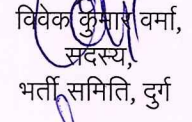 विवेक कुमार वर्मा,
सदस्य,
भर्ती समिति, दुर्ग